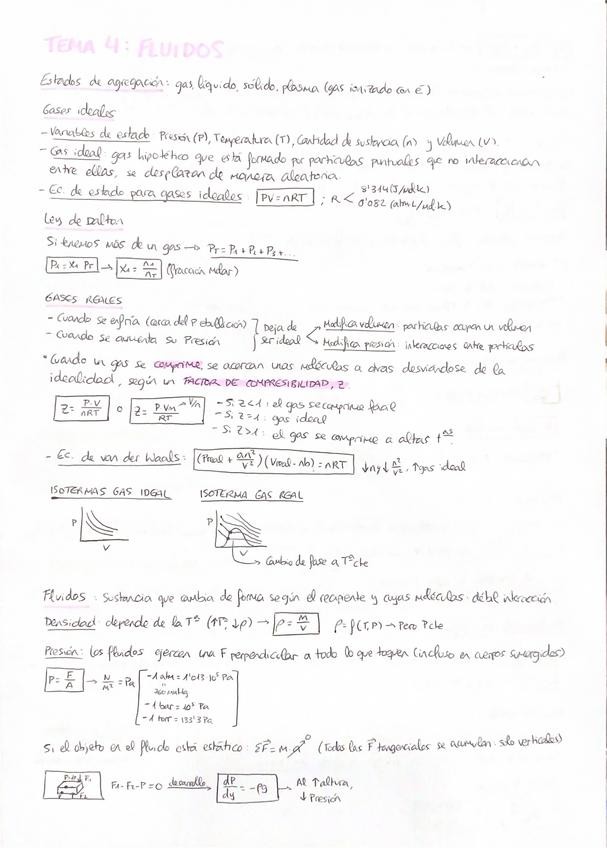 TEMA 4: FLUIDOS
Estados de agregación: gas, líquido, sólido, plasma (gas ionizado con é)
Gases ideales
- Variables de estado Presión (P), Temperatura (T), Cantidad de sustancia (n) y Volumen (V).
- Gas ideal: gas hipotético que está formado por partículas puntuales que no interaccionan
entre ellas, se desplazan de manera aleatoria.
- Ec. de estado para gases ideales: PV = nRT ; R < 8'314 (J/molK)
0'082 (atmL/molK)
Ley de Dalton
Si tenemos más de un gas → PT = P1 + P2 + P3 + ...
P1 = X1 PT → X1 = n1/nT (fracción molar)
GASES REALES
- Cuando se enfría (cerca del P ebullición)
- Cuando se aumenta su Presión
Deja de
ser ideal
Modifica volumen: partículas ocupan un volumen
Modifica presión: interacciones entre partículas
* Cuando un gas se comprime, se acercan unas moléculas a otras desviándose de la
idealidad, según un FACTOR DE COMPRESIBILIDAD, Z
Z = P·V/nRT o Z = P Vm/RT → V/n
- Si Z<1: el gas se comprime fácil
- Si Z=1: gas ideal
- Si Z>1: el gas se comprime a altas tªs
- Ec. de van der Waals: (Preal + an²/V²)(Vreal - nb) = nRT ↓n y ↓ n²/V², ↑ gas ideal
ISOTERMAS GAS IDEAL ISOTERMA GAS REAL
P P
V V
Cambio de fase a Tª cte
Fluidos: Sustancia que cambia de forma según el recipiente y cuyas moléculas débil interacción
Densidad: depende de la Tª (↑Tª, ↓ρ) → ρ = M/V ρ = f(T,P) → Pero P cte
Presión: Los fluidos ejercen una F perpendicular a todo lo que toquen (incluso en cuerpos sumergidos)
P = F/A → N/m² = Pa
- 1 atm = 1'013 10⁵ Pa
760 mmHg
- 1 bar = 10⁵ Pa
- 1 torr = 133'3 Pa
Si el objeto en el fluido está estático: ΣF = M·a 0 (Todas las F tangenciales se acumulan solo verticales)
F1 - F2 - P = 0 desarrollo dP/dy = -ρg → Al ↑altura,
↓ Presión